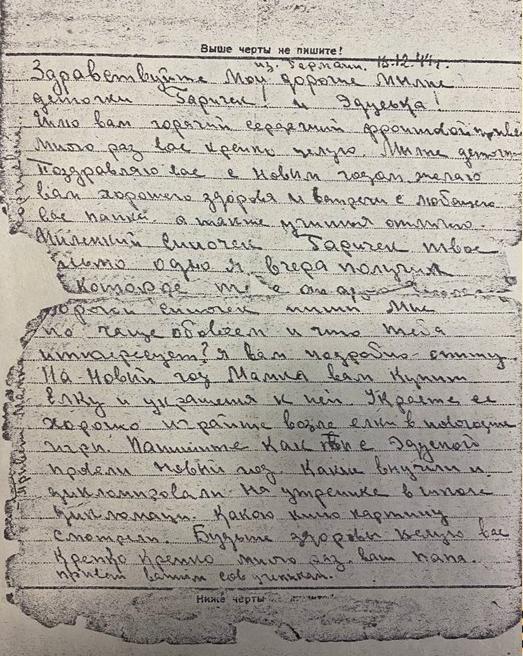 Выше черты не пишите!
из. Германи. 15.12.44г.
Здравствуйте Мои дорогие милие
деточки Гаричек! и Эдуська!
Шлю вам горячий сердечний фронтовой приве
много раз вас крепко целую. Милие деточк
Поздравляю вас с Новим годам желаю
вам хорошего здоровя и встречи с любящего
вас папка. а также учится отлично.
Миленкий синочек Гаричек твое
писмо одно я вчера получил
Которое ти
дорогой синочек пиши мне
по чаще обовсем и что тебя
интересует? я вам подробно опишу.
На Новий год Мамка вам Купит
Елку и украшения к ней Украсте ее
хорошо играйте возле елки в новогодние
игри. Напишите Как ти с Эдуской
провели новий год. Какие виучили и
дикломировали на утренике в школе
дикломаци. Какою кино картину
смотрели. Будьте здорови целую вас
Крепко Крепко много раз. ваш папа.
привет вашим
Ниже черты